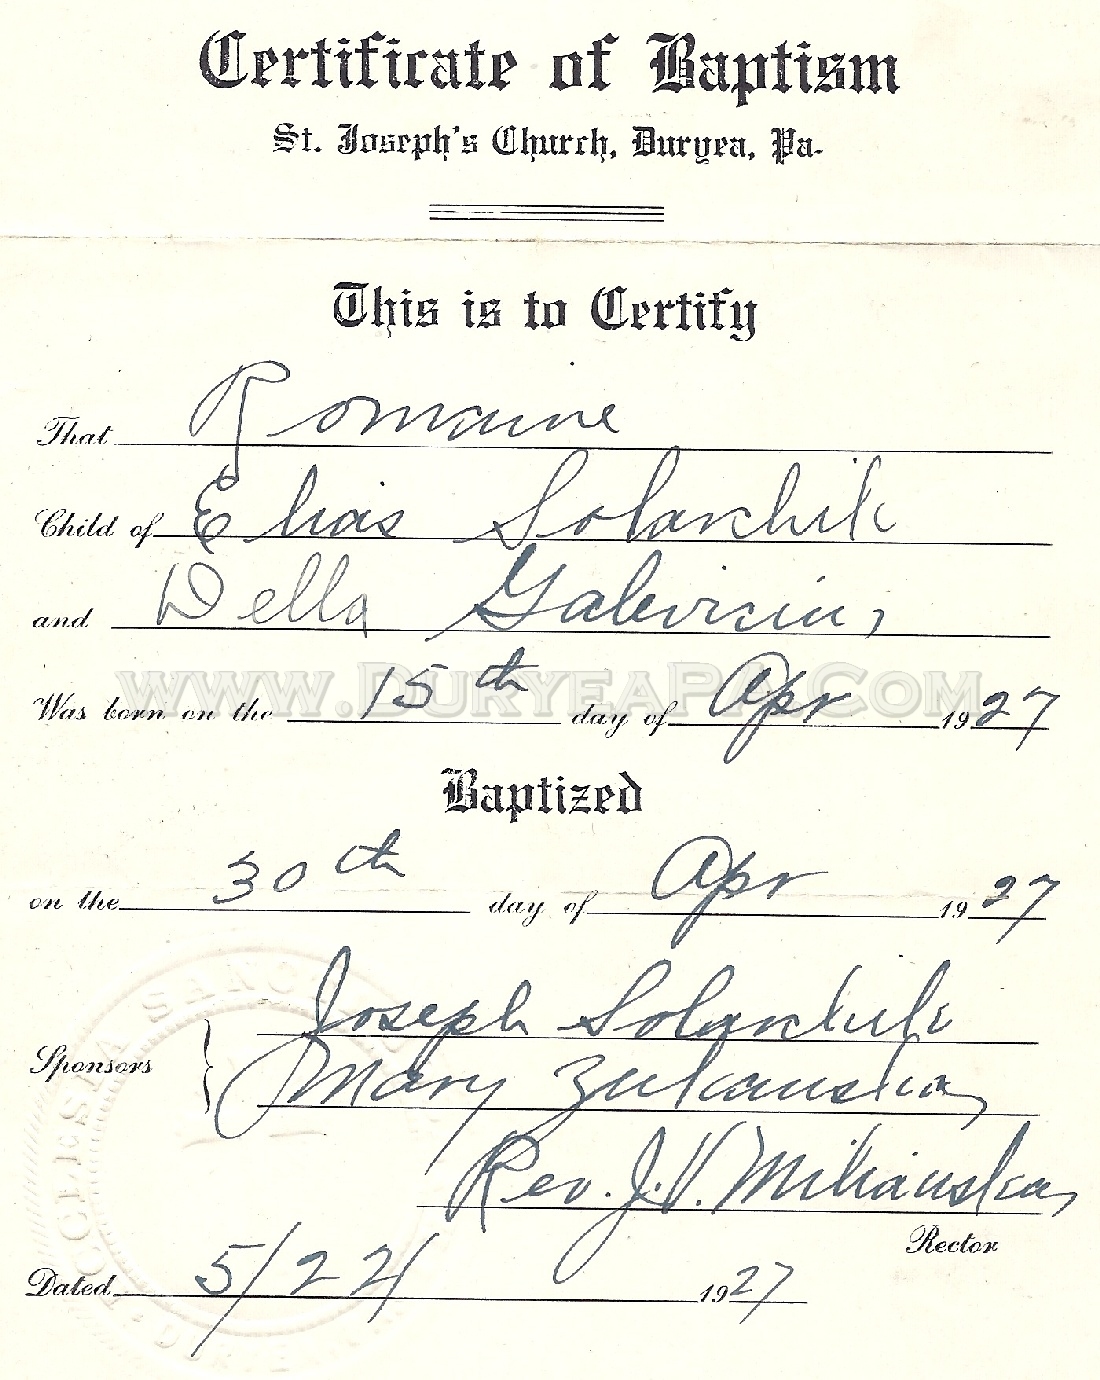 Certificate of Baptism
St. Joseph's Church, Duryea, Pa.
This is to Certify
That Romaine
Child of Elias Solarchik
and Della Galevicius
www.DuryeaPA.Com
Was born on the 15th day of Apr 1927
Baptized
on the 30th day of Apr 1927
Sponsors Joseph Solarchik
Mary Zukauskas
Rev. J. V. Mikiauskas
Rector
Dated 5/22/ 1927
ECCLESIA SANCT